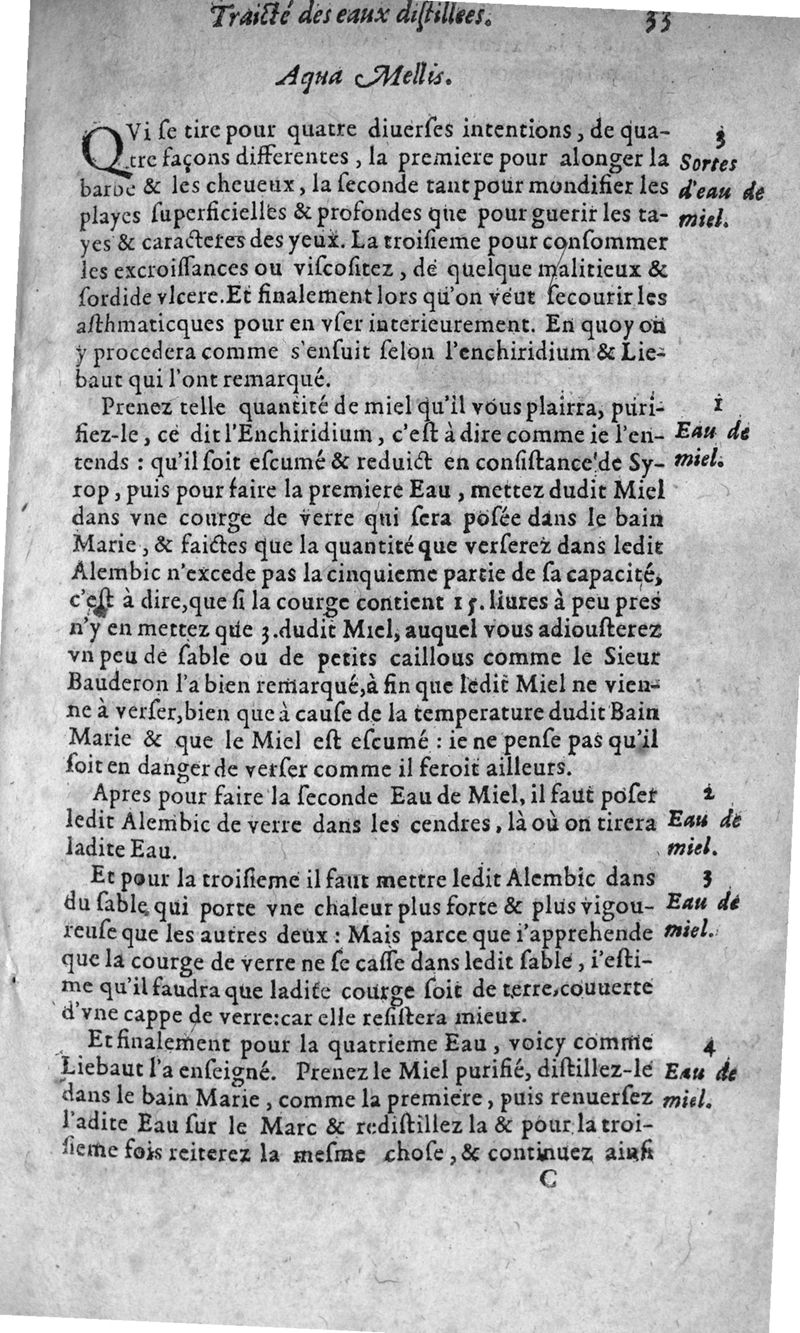 Traicté des eaux diſtillees. 33
Aqua Mellis.
QVi ſe tire pour quatre diuerſes intentions, de qua-
tre façons differentes, la premiere pour alonger la
barbe & les cheueux, la ſeconde tant pour mondifier les
playes ſuperficielles & profondes que pour guerir les ta-
yes & caracteres des yeux. La troiſieme pour conſommer
les excroiſſances ou viſcoſitez, de quelque malitieux &
ſordide vlcere. Et finalement lors qu'on veut ſecourir les
aſthmaticques pour en vſer interieurement. En quoy on
y procedera comme s'enſuit ſelon l'enchiridium & Lie-
baut qui l'ont remarqué.
Sortes
d'eau de
miel.
Prenez telle quantité de miel qu'il vous plairra, puri-
fiez-le, ce dit l'Enchiridium, c'eſt à dire comme ie l'en-
tends : qu'il ſoit eſcumé & reduict en conſiſtance de Sy-
rop, puis pour faire la premiere Eau, mettez dudit Miel
dans vne courge de verre qui ſera posée dans le bain
Marie, & faictes que la quantité que verſerez dans ledit
Alembic n'excede pas la cinquieme partie de ſa capacité,
c'eſt à dire, que ſi la courge contient 15. liures à peu pres
n'y en mettez que 3. dudit Miel, auquel vous adiouſterez
vn peu de ſable ou de petits caillous comme le Sieur
Bauderon l'a bien remarqué, à fin que ledit Miel ne vien-
ne à verſer, bien que à cauſe de la temperature dudit Bain
Marie & que le Miel eſt eſcumé : ie ne penſe pas qu'il
ſoit en danger de verſer comme il feroit ailleurs.
1
Eau de
miel.
Apres pour faire la ſeconde Eau de Miel, il faut poſer
ledit Alembic de verre dans les cendres, là où on tirera
ladite Eau.
2
Eau de
miel.
Et pour la troiſieme il faut mettre ledit Alembic dans
du ſable qui porte vne chaleur plus forte & plus vigou-
reuſe que les autres deux : Mais parce que i'apprehende
que la courge de verre ne ſe caſſe dans ledit ſable, i'eſti-
me qu'il faudra que ladite courge ſoit de terre, couuerte
d'vne cappe de verre: car elle reſiſtera mieux.
3
Eau de
miel.
Et finalement pour la quatrieme Eau, voicy comme
Liebaut l'a enſeigné. Prenez le Miel purifié, diſtillez-le
dans le bain Marie, comme la premiere, puis renuerſez
l'adite Eau ſur le Marc & rediſtillez la & pour la troi-
ſieme fois reiterez la meſme choſe, & continuez ainſi
4
Eau de
miel.
C